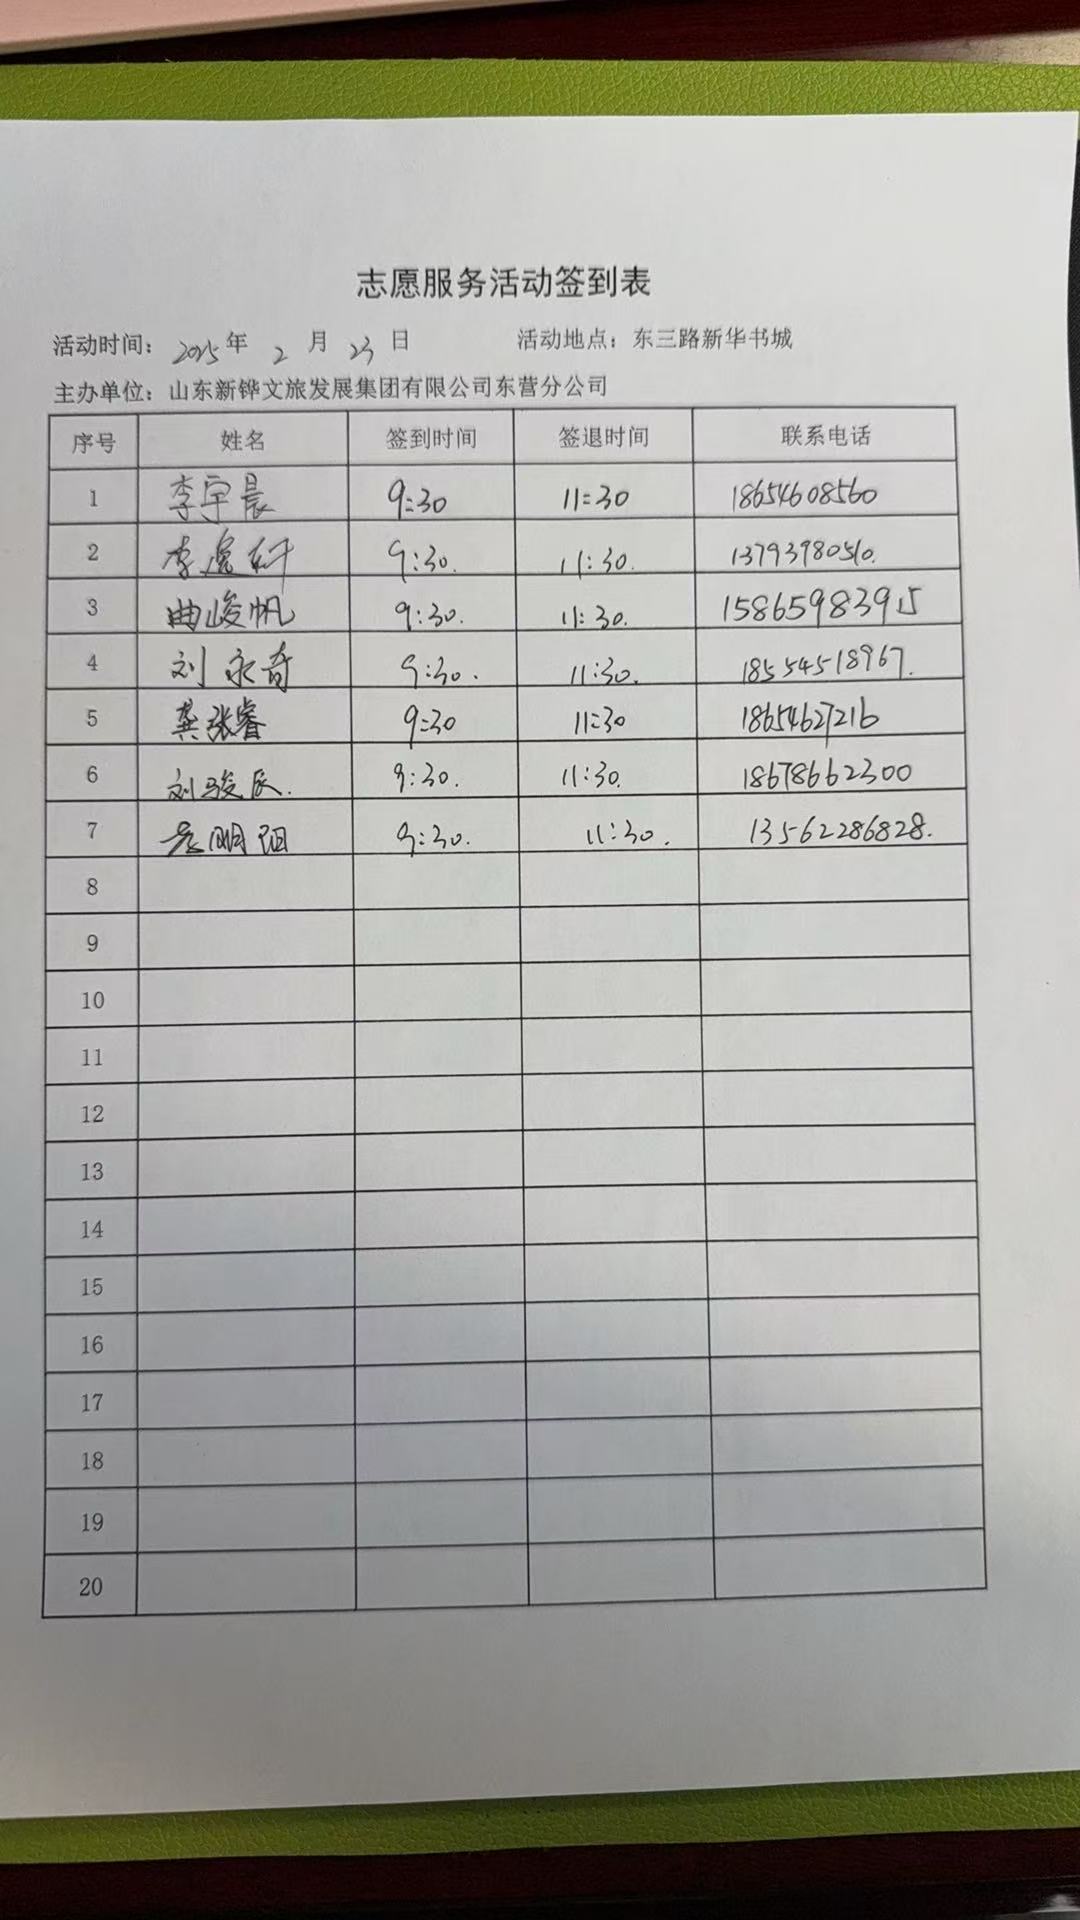 志愿服务活动签到表
活动时间：2025年 2 月 23 日 活动地点：东三路新华书城
主办单位：山东新铧文旅发展集团有限公司东营分公司
序号 姓名 签到时间 签退时间 联系电话
1 李宇晨 9:30 11:30 18654608560
2 李 轩 9:30. 11:30. 13793980510.
3 曲峻帆 9:30. 11:30. 15865983915
4 刘永奇 9:30. 11:30. 18554518967.
5 龚张睿 9:30 11:30 18654627216
6 刘骏辰. 9:30. 11:30. 18678662300
7 明阳 9:30. 11:30. 13562286828.
8
9
10
11
12
13
14
15
16
17
18
19
20